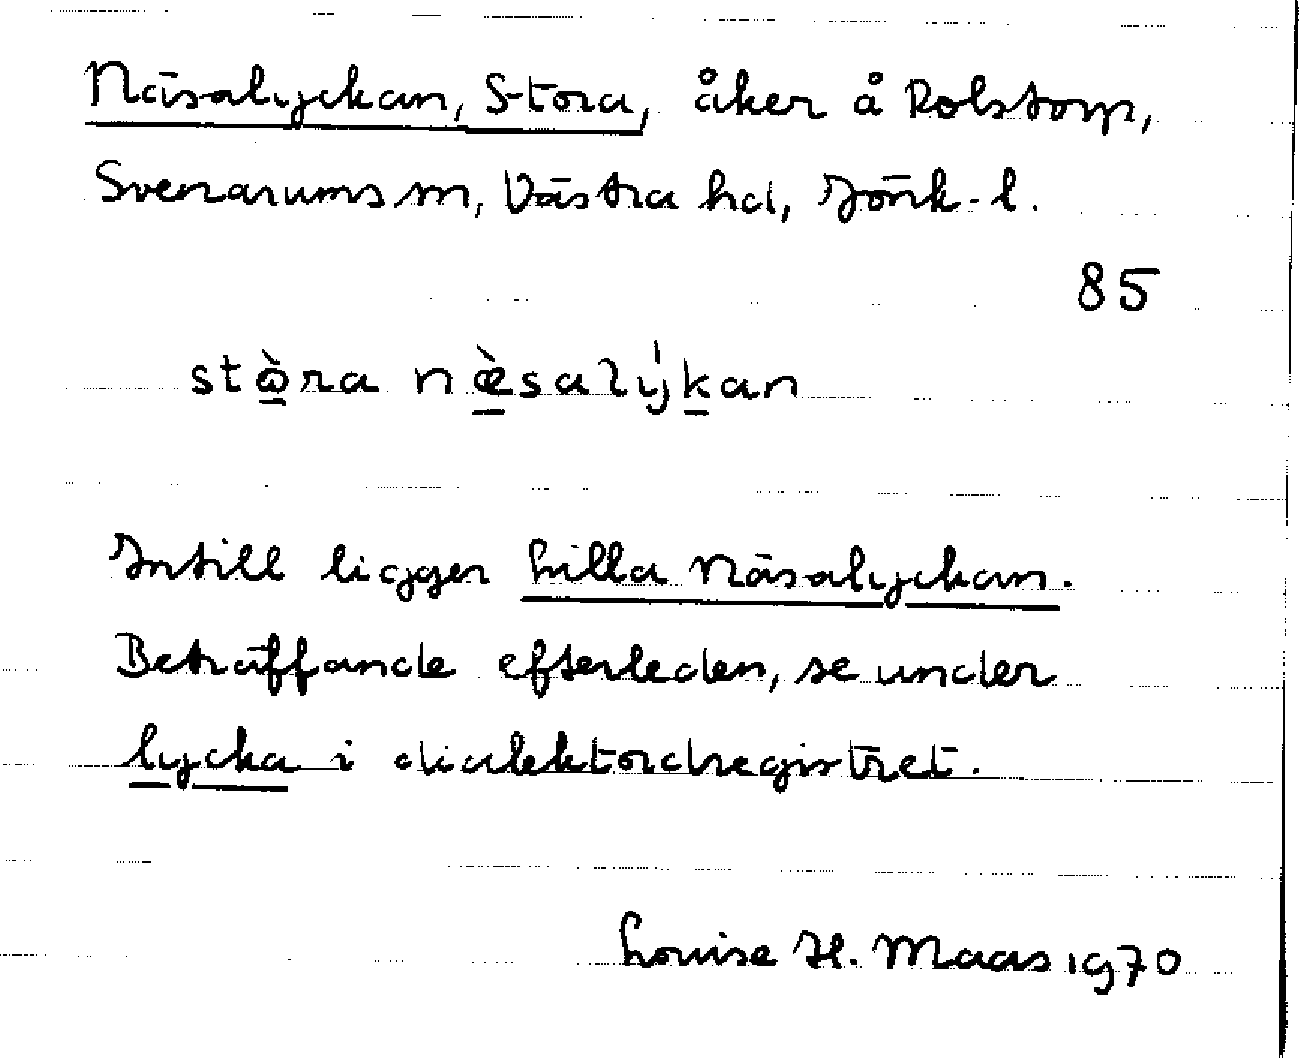 Näsalyckan, Stora, åker å Rolstorp,
Svenarums sn, Västra hd, Jönk. l.
85
stὼra næ̀salýkan
Intill ligger Lilla Näsalyckan.
Beträffande efterleden, se under
lycka i dialektordregistret.
Louise H. Maas 1970